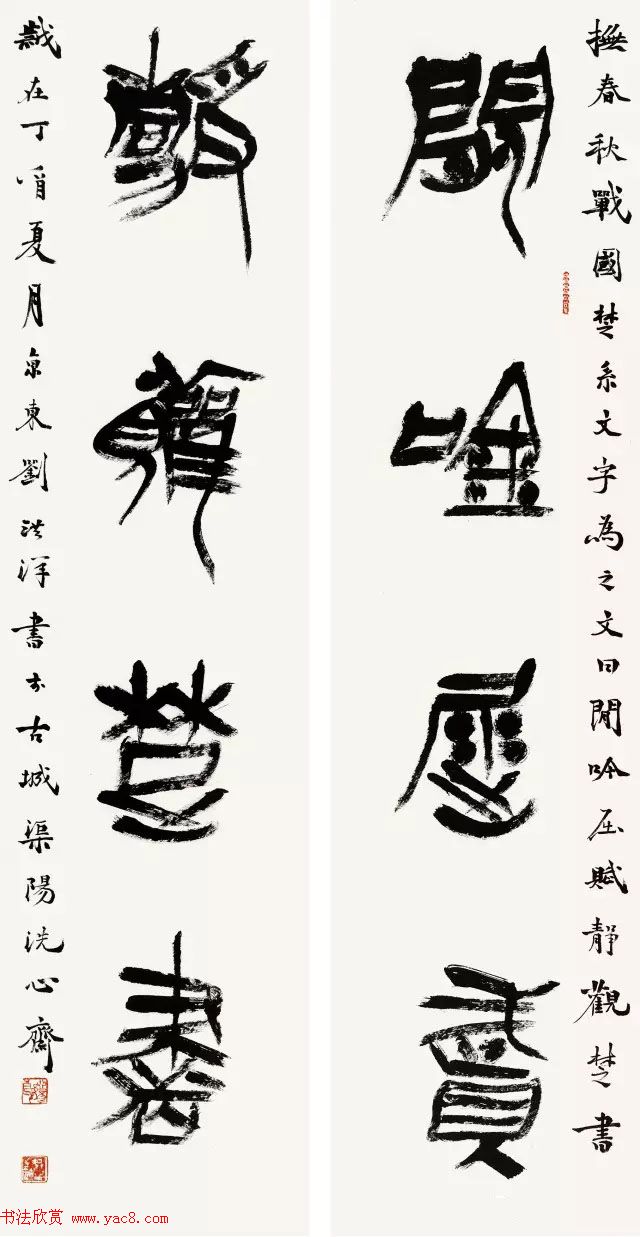 撫春秋戰國楚系文字為之文曰閒吟屈賦靜觀楚書
閒吟屈賦
靜觀楚書
歲在丁酉夏月京東劉洪洋書於古城渠陽洗心齋
书法欣赏 www.yac8.com